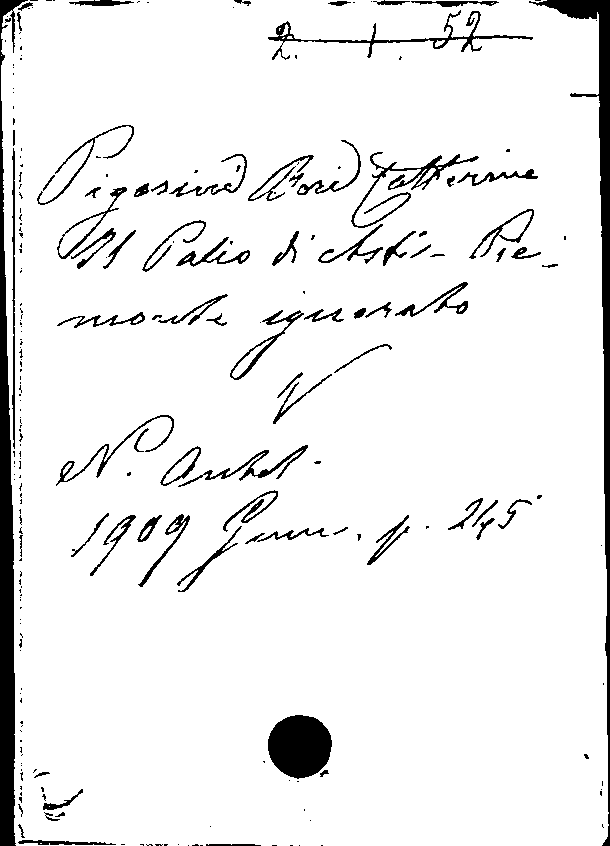 2. 1. 52
Pigorini Beri Catterine
Il Palio di Asti - Pie-
monte ignorato
V
N. Antol.
1909 Genn. p. 245